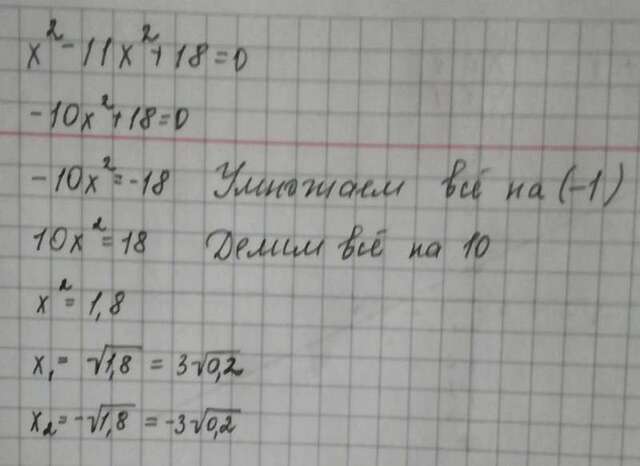 x² - 11x² + 18 = 0
-10x² + 18 = 0
-10x² = -18 Умножаем всё на (-1)
10x² = 18 Делим всё на 10
x² = 1,8
x₁ = √1,8 = 3√0,2
x₂ = -√1,8 = -3√0,2